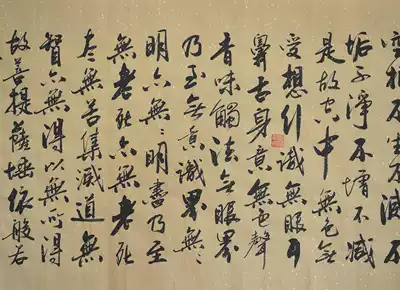 空相不生不滅不
垢不淨不增不減
是故空中無色無
受想行識無眼耳
鼻舌身意無色聲
香味觸法無眼界
乃至無意識界無〻
明亦無〻明盡乃至
無老死亦無老死
盡無苦集滅道無
智亦無得以無所得
故菩提薩埵依般若